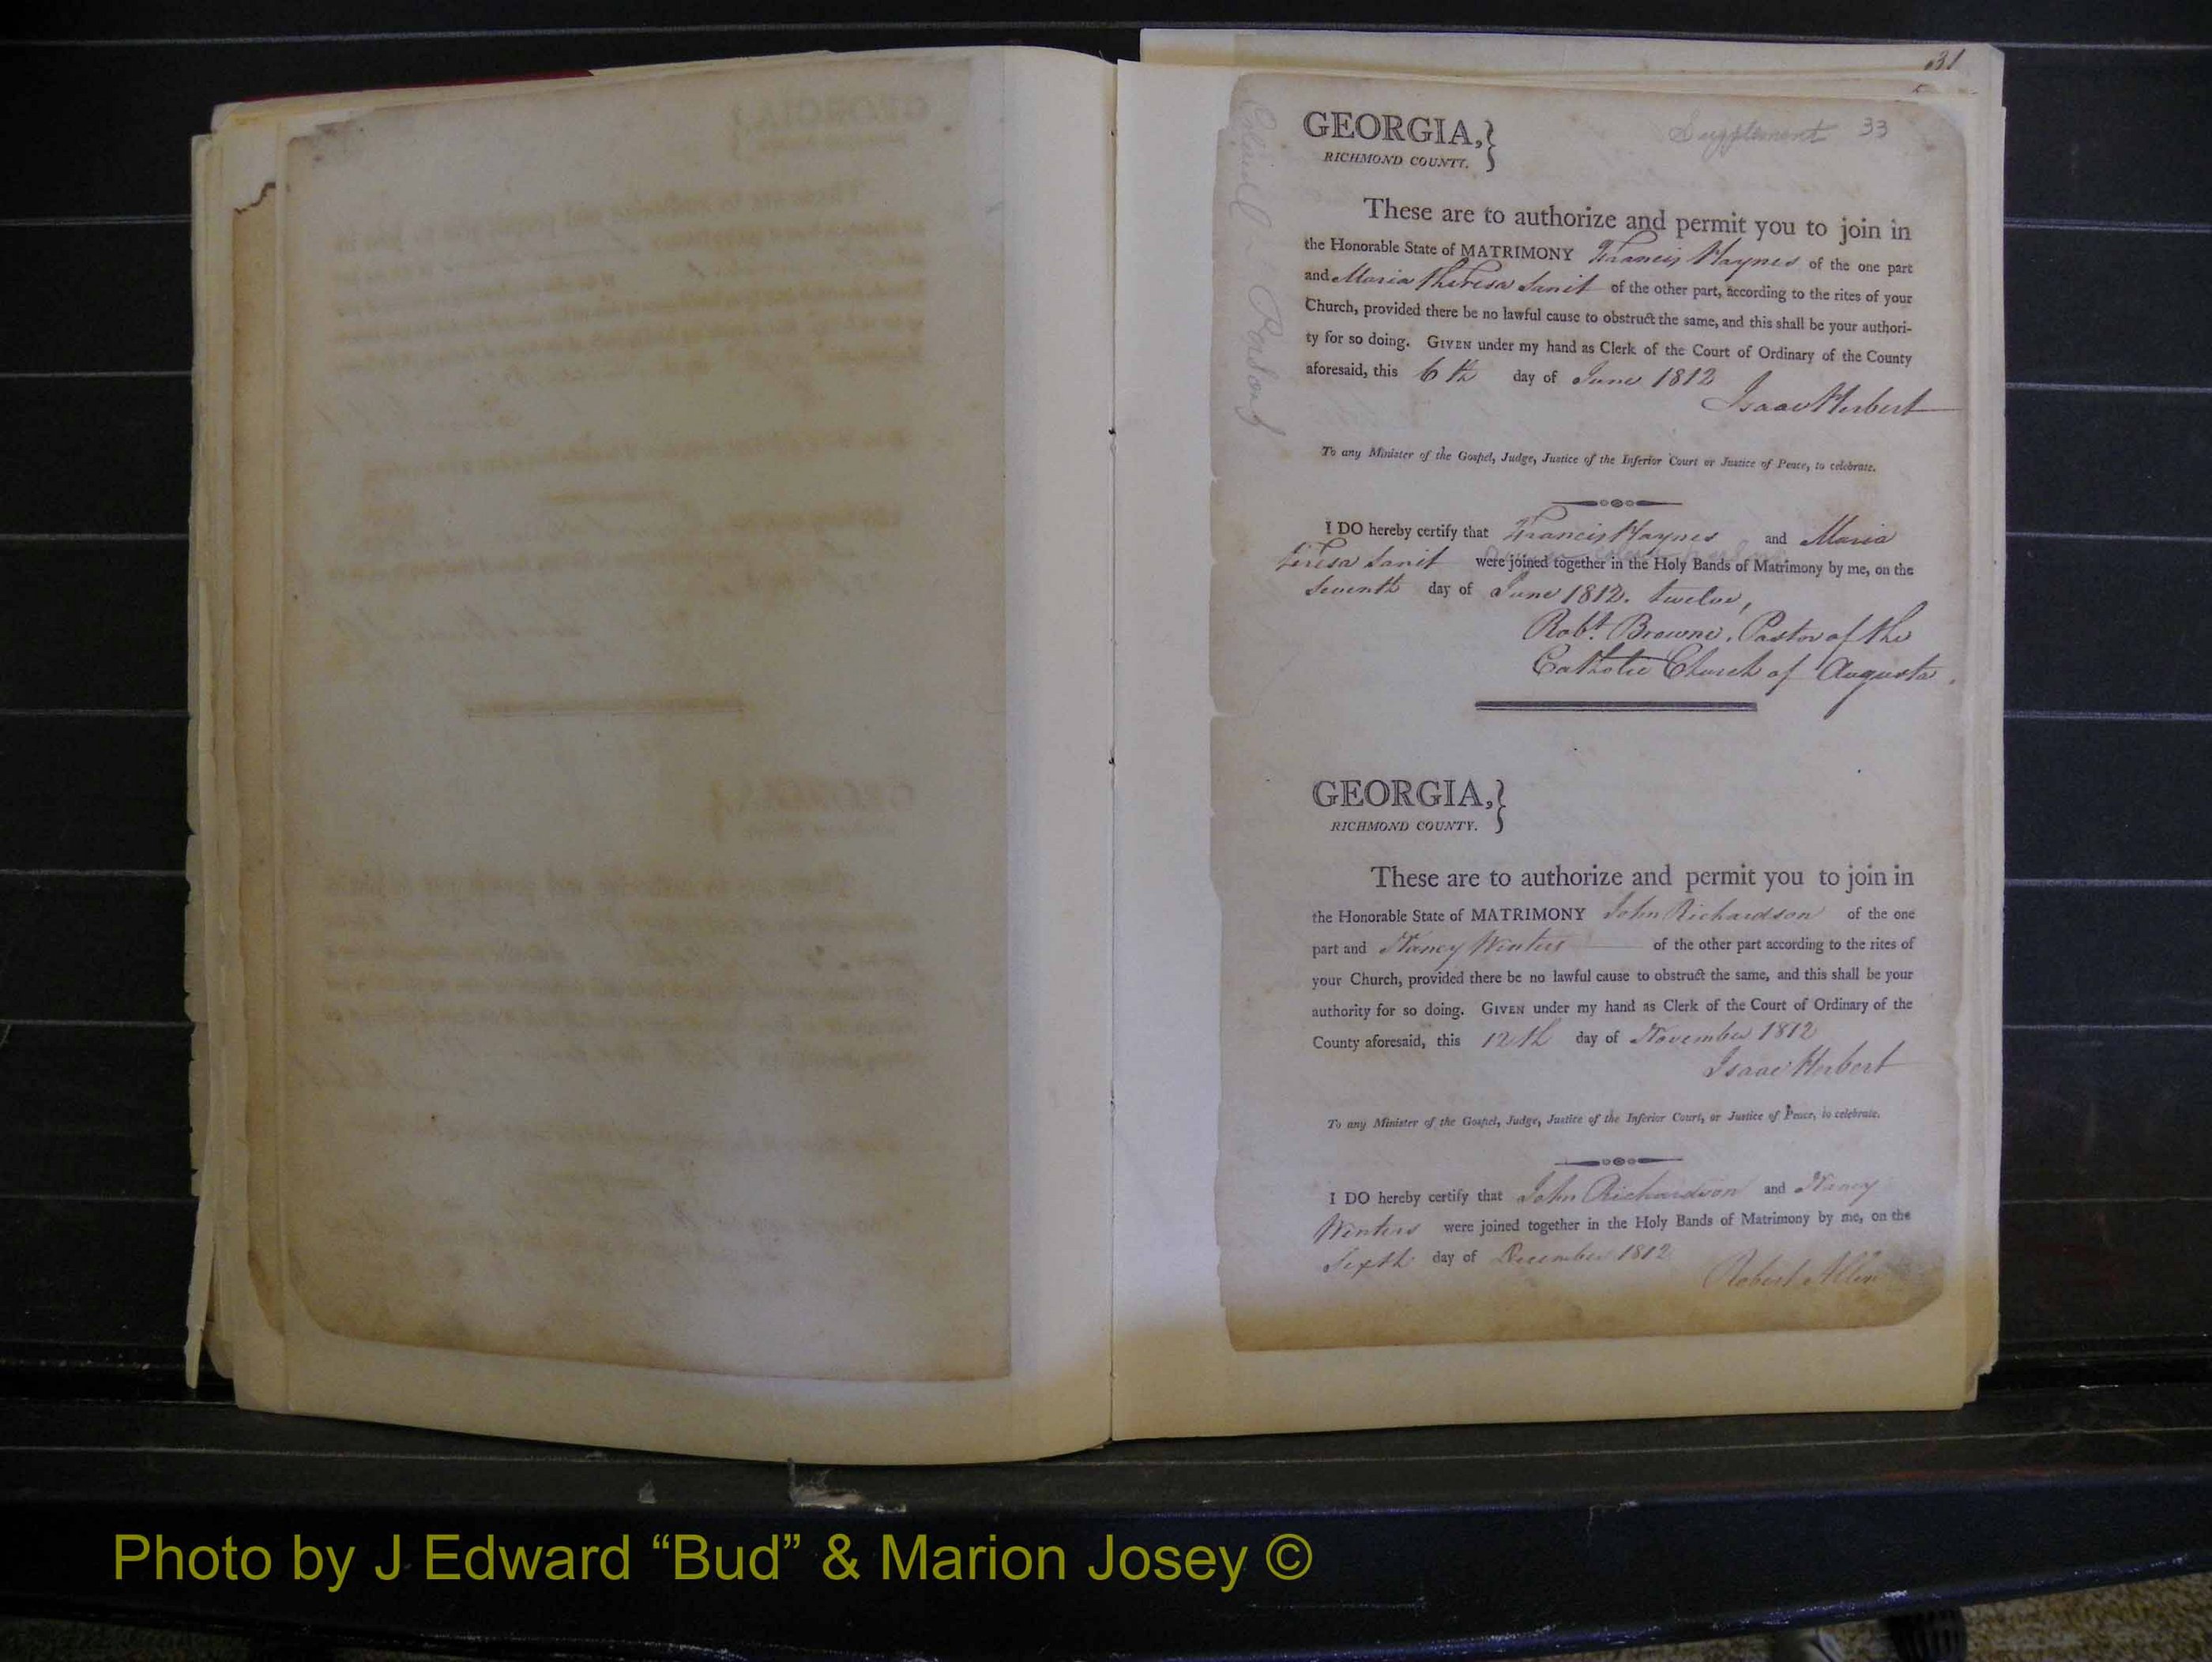 31
Supplement 33
GEORGIA,}
RICHMOND COUNTY.
These are to authorize and permit you to join in
the Honorable State of MATRIMONY Francis Haynes of the one part
and Maria Theresa Sanit of the other part, according to the rites of your
Church, provided there be no lawful cause to obstruct the same, and this shall be your authori-
ty for so doing. GIVEN under my hand as Clerk of the Court of Ordinary of the County
aforesaid, this 6th day of June 1812
Isaac Herbert
To any Minister of the Gospel, Judge, Justice of the Inferior Court or Justice of Peace, to celebrate.
I DO hereby certify that Francis Haynes and Maria
Teresa Sanit were joined together in the Holy Bands of Matrimony by me, on the
Seventh day of June 1812. twelve,
Robt. Browne, Pastor of the
Catholic Church of Augusta.
Colored Persons
GEORGIA,}
RICHMOND COUNTY.
These are to authorize and permit you to join in
the Honorable State of MATRIMONY John Richardson of the one
part and Nancy Winters of the other part according to the rites of
your Church, provided there be no lawful cause to obstruct the same, and this shall be your
authority for so doing. GIVEN under my hand as Clerk of the Court of Ordinary of the
County aforesaid, this 12th day of November 1812
Isaac Herbert
To any Minister of the Gospel, Judge, Justice of the Inferior Court, or Justice of Peace, to celebrate.
I DO hereby certify that John Richardson and Nancy
Winters were joined together in the Holy Bands of Matrimony by me, on the
Sixth day of December 1812
Robert Allen
Photo by J Edward “Bud” & Marion Josey ©